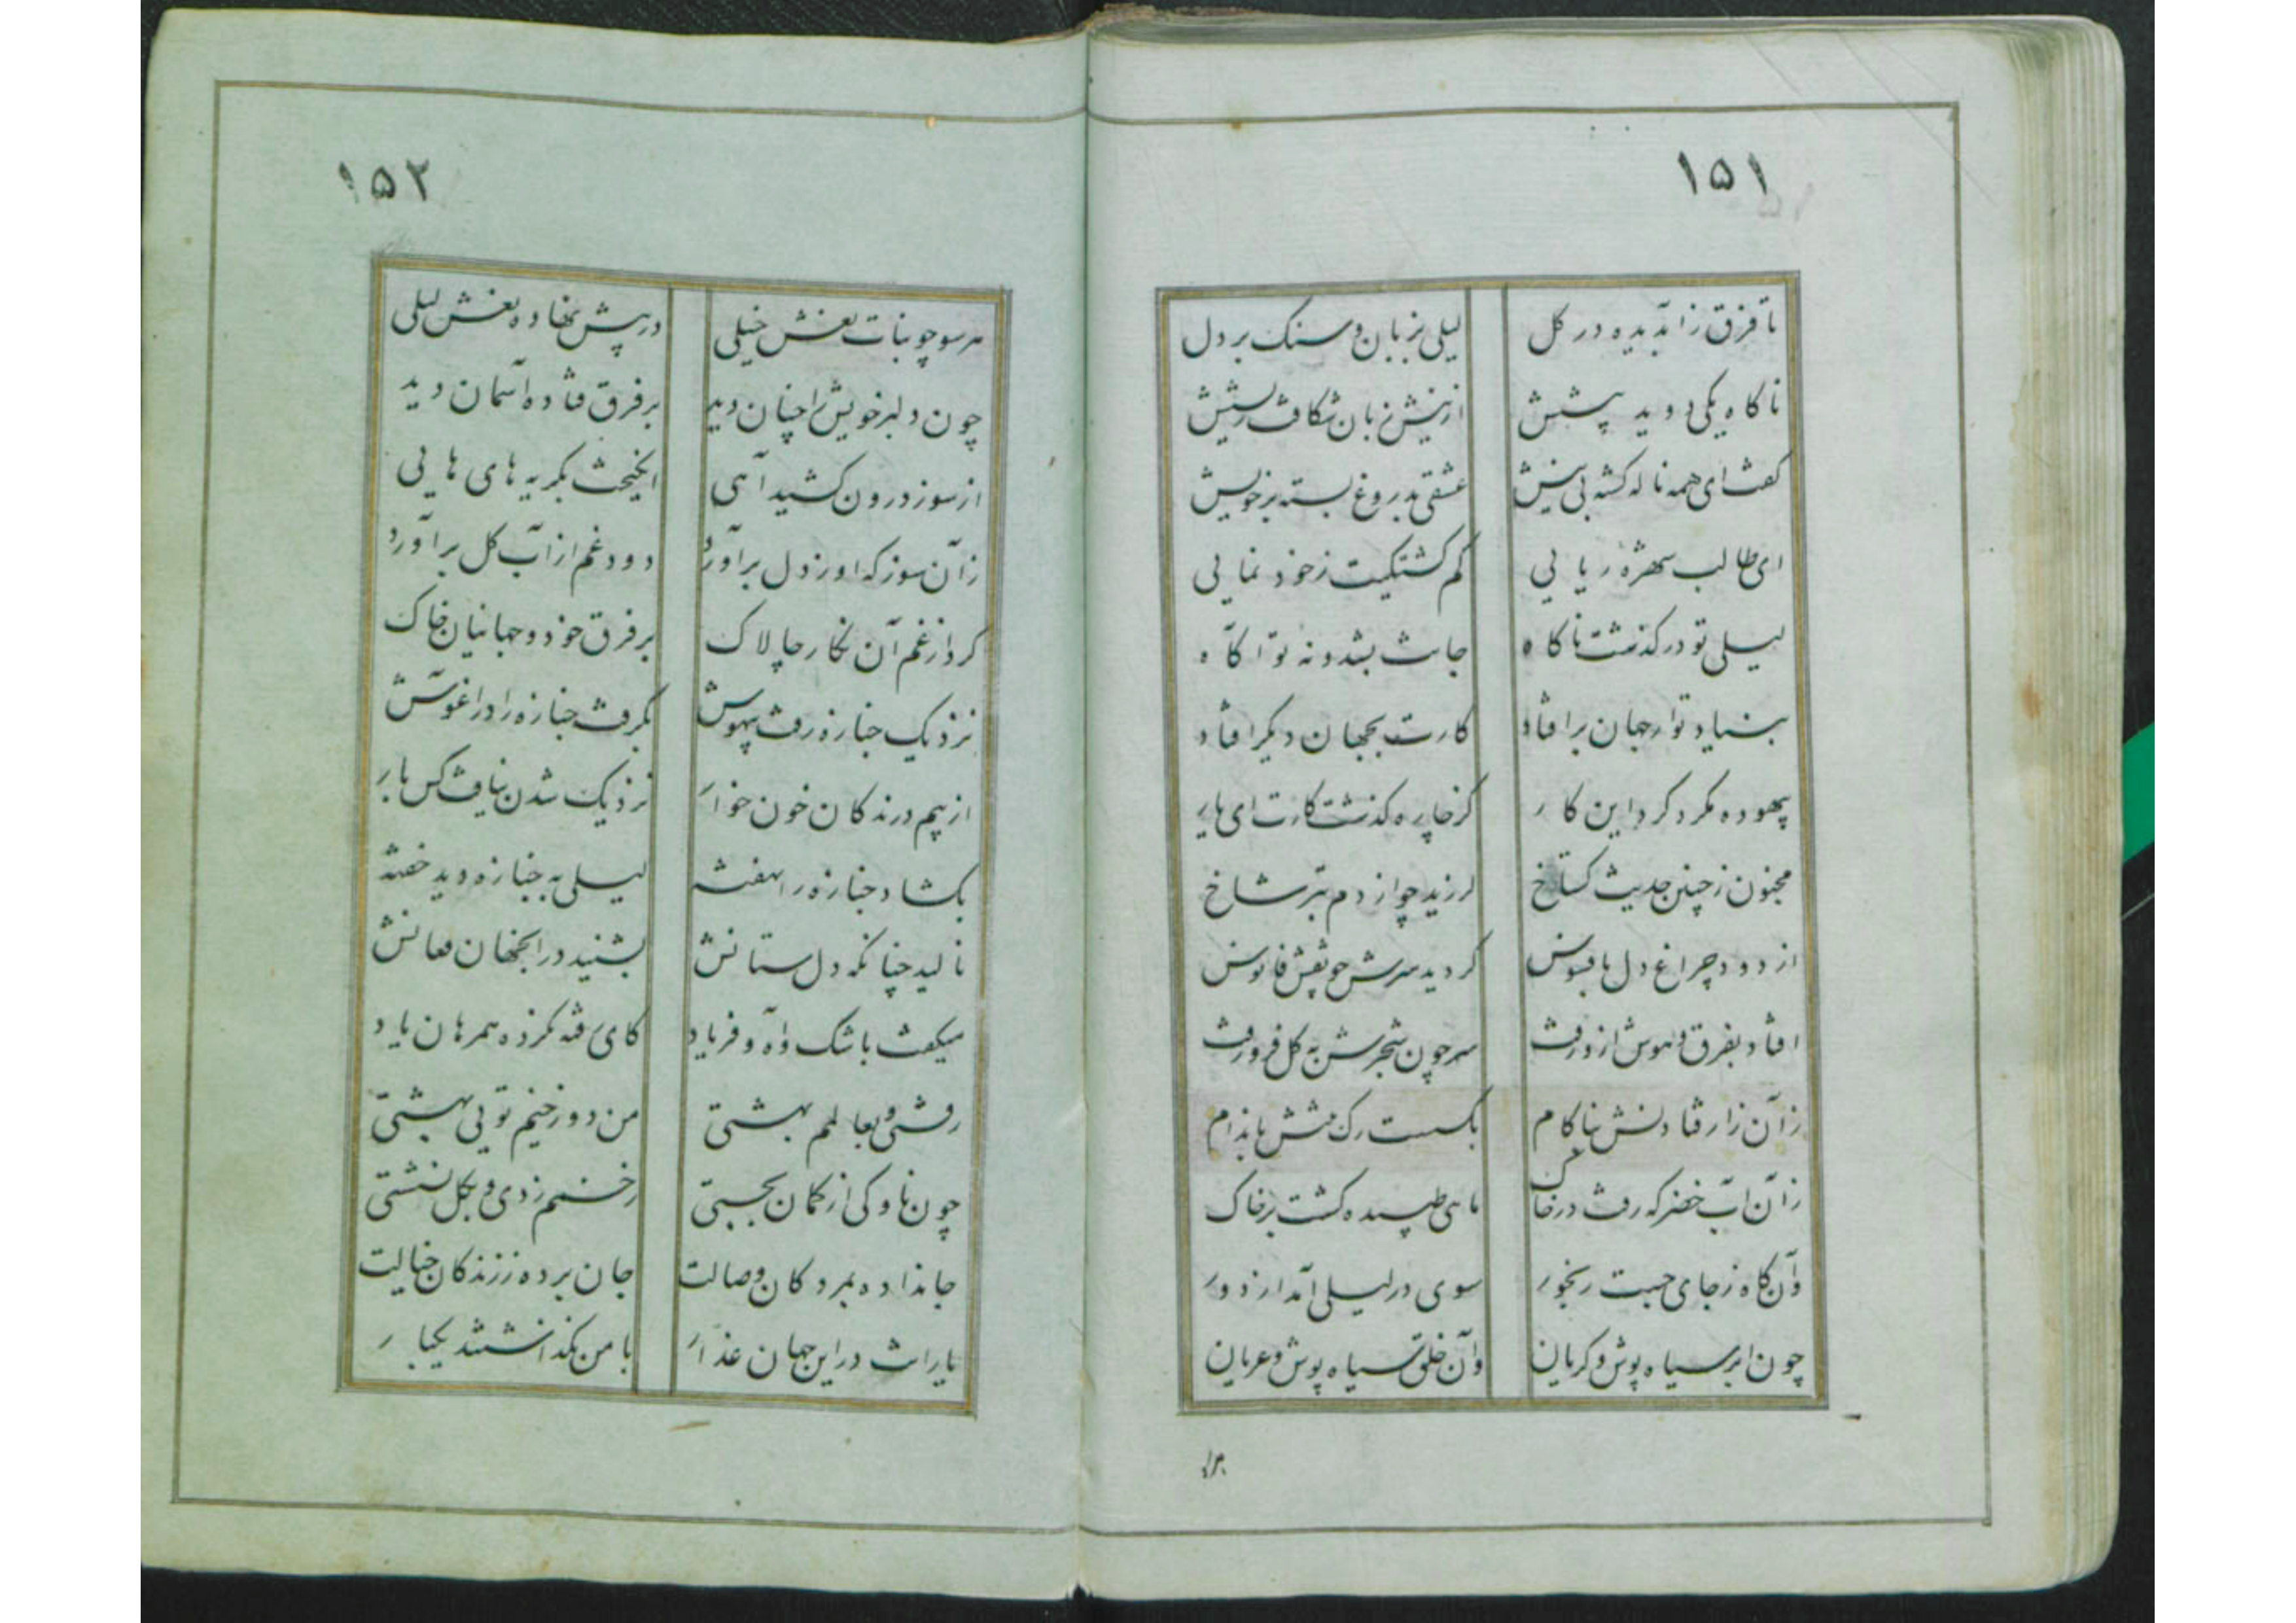 ۱۵۱
تا فرق ز آب دیده در گل لیلی بزبان و سنگ بر دل
ناگاه یکی دوید پیشش از نیش زبان شکافت ریشش
گفت ای همه ناله گشته بی نیش عشقی بدروغ بسته بر خویش
ای طالب شهره ریایی گم گشتگیت ز خود نمایی
لیلی تو در گذشت ناگاه جانت بشد و نه تو آگاه
بنیاد تو از جهان بر افتاد کارت بجهان دیگر افتاد
بیهوده مگرد گرد این کار کز چاره گذشت کارت ای یار
مجنون ز چنین حدیث گستاخ لرزید چو از دم تبر شاخ
از دود چراغ دل بافسوس گردید سرش چو نقش فانوس
افتاد بفرق و هوش ازو رفت سر چون شجرش به گل فرو رفت
زآن زار فتادنش بناکام بگسست رگ تنش باندام
زآن آب خضر که رفت در خاک ماهی طپیده گشت بر خاک
وآن گاه ز جای جست رنجور سوی در لیلی آمد از دور
چون ابر سیاه پوش و گریان وآن خلق سیاه پوش و عریان
۱۵۲
هر سو چو بنات نعش خیلی در پیش نهاده نعش لیلی
چون دلبر خویش را چنان دید بر فرق فتاده آسمان دید
از سوز درون کشید آهی انگیخت بگریه های هایی
زآن سوز که او ز دل برآورد دود غم از آب گل برآورد
کرد از غم آن نگار چالاک بر فرق خود و جهانیان خاک
نزدیک جنازه رفت بیهوش بگرفت جنازه را در آغوش
از بیم درندگان خون خوار نزدیک شدن نیافت کس بار
بگشاد جنازه را نهفته لیلی به جنازه دید خفته
نالید چنانکه دل ستانش بشنید در آنجهان فغانش
میگفت باشک و آه و فریاد کای رفته نکرده همرهان یاد
رفتی و بعالم بهشتی من دوزخیم تویی بهشتی
چون ناوکی از کمان بجستی زخمم زدی و بگل نشستی
جانداده بمردگان وصالت جان برده ز زندگان خیالت
یارات در این جهان غدار با من نگذاشتند یکبار